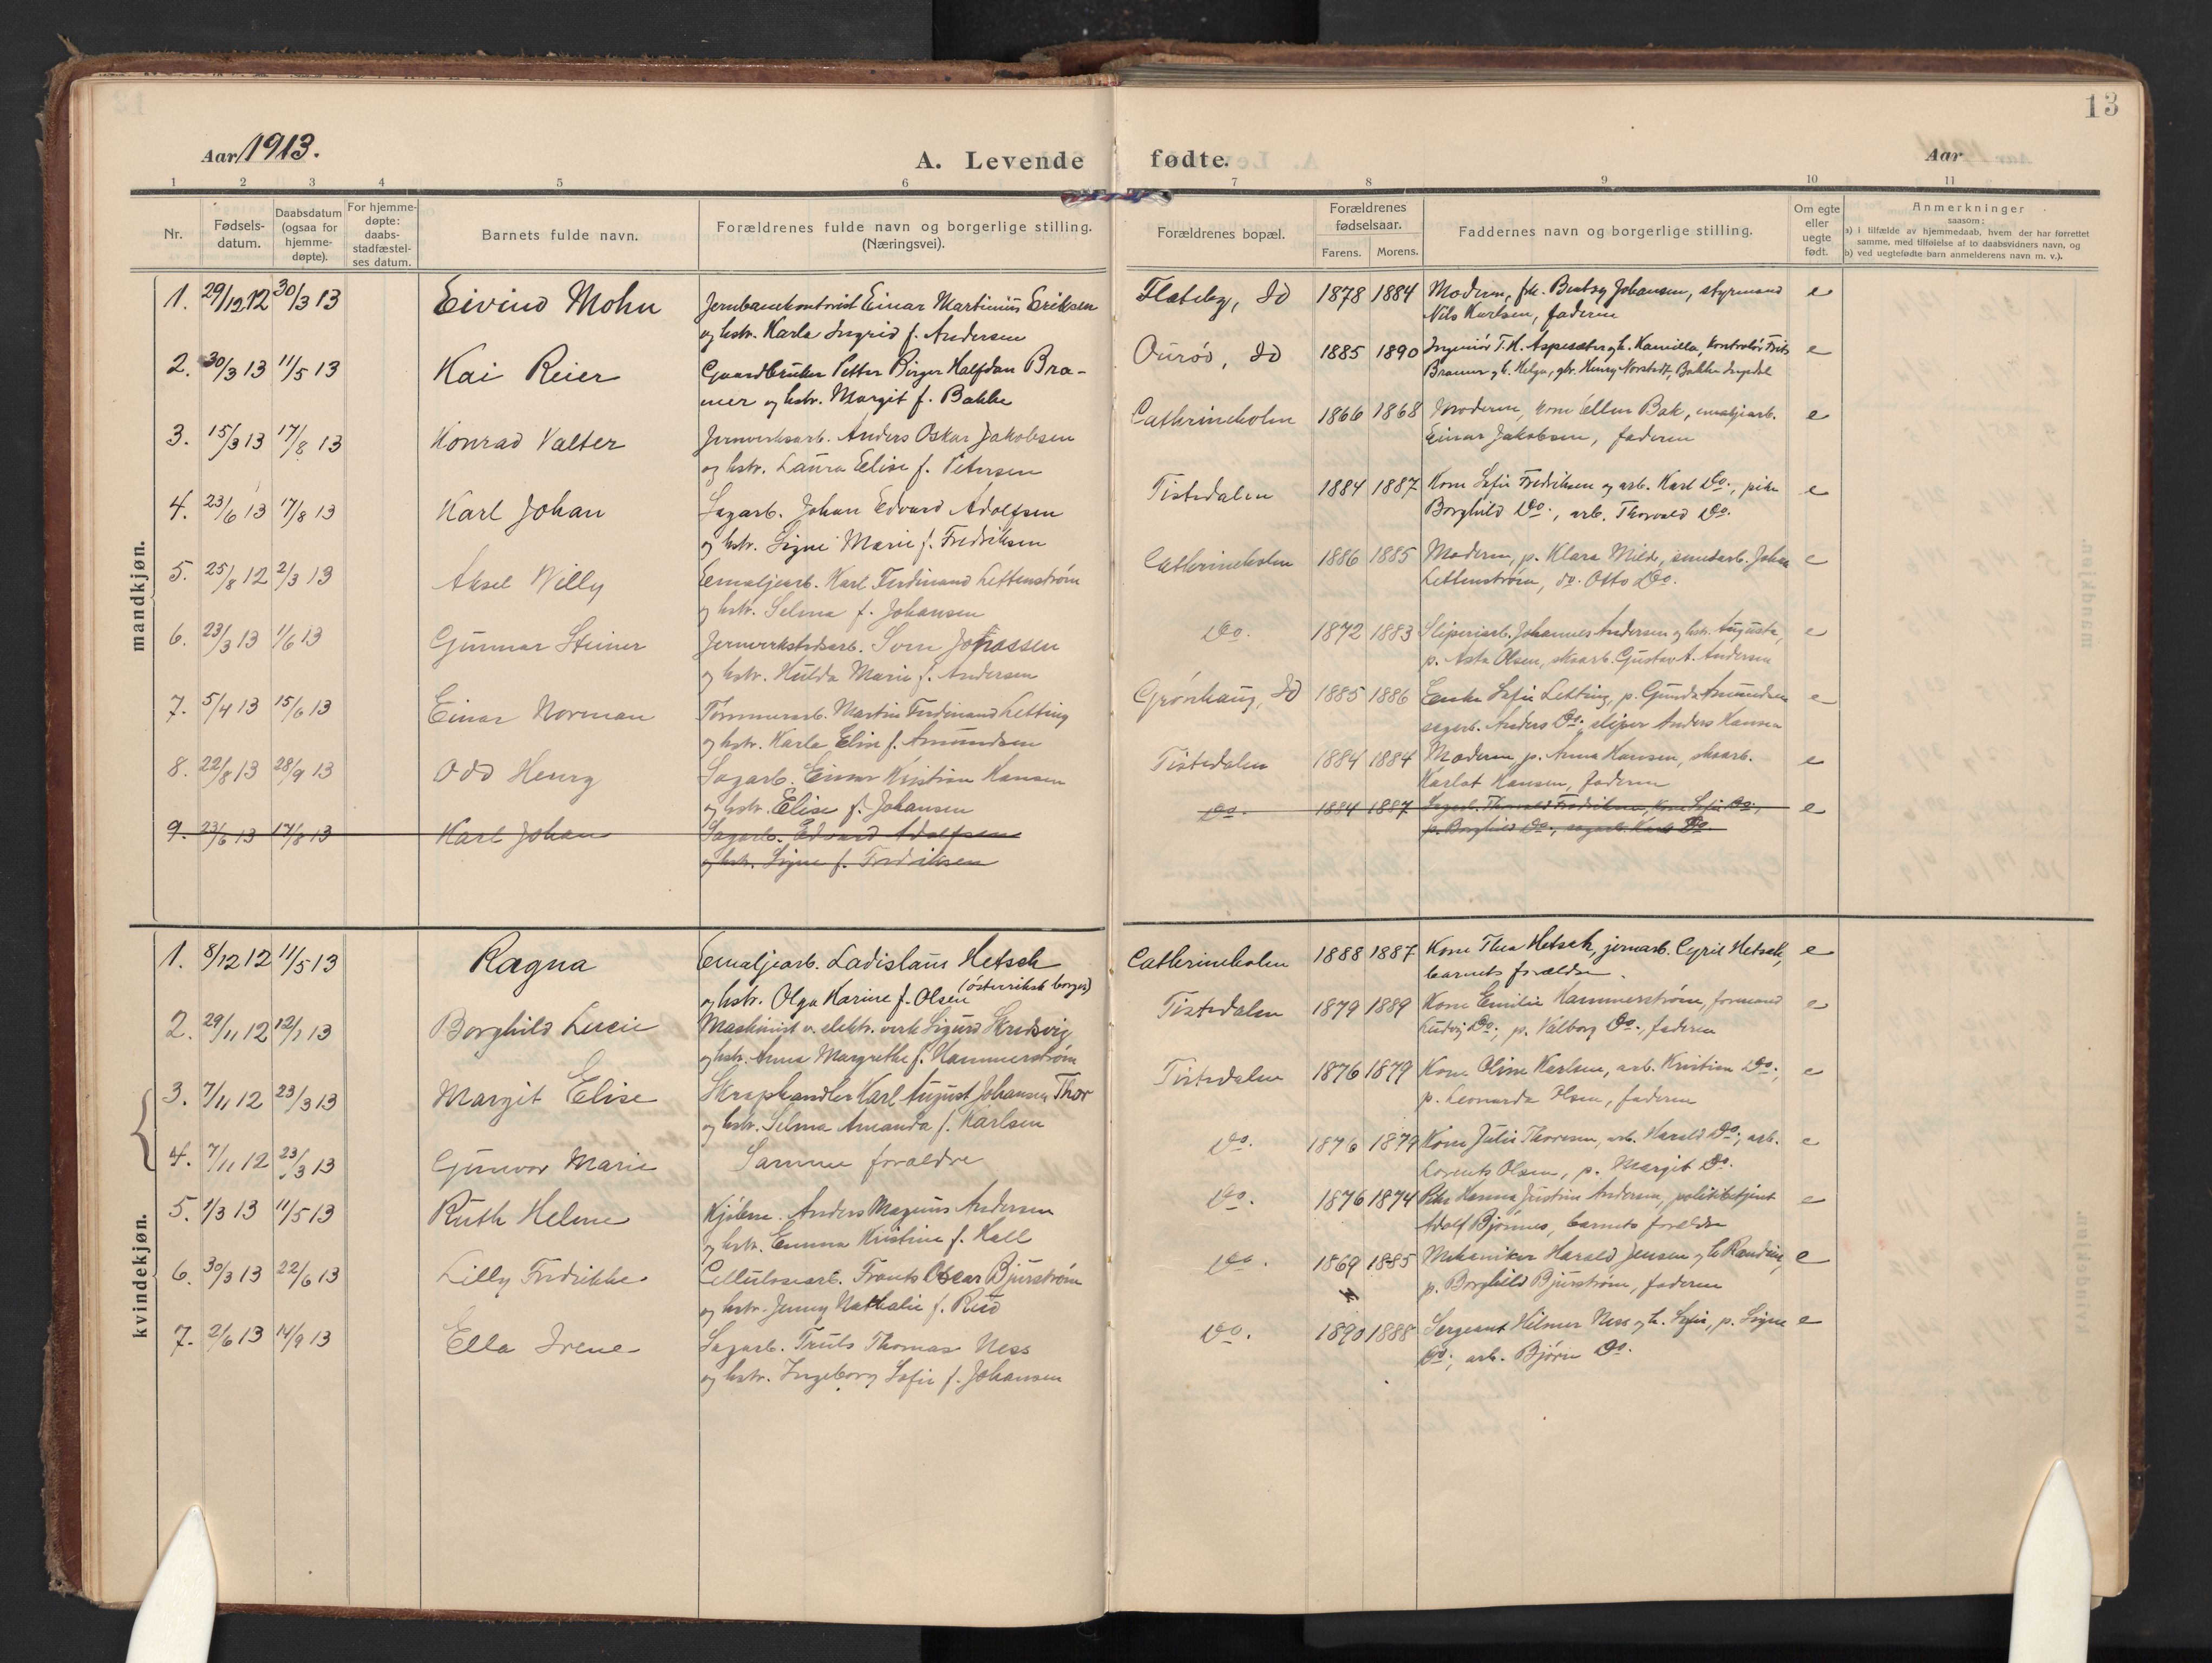 13
Aar 1913.
A. Levende fødte.
Aar
1 2 3 4 5 6 7 8 9 10 11
Nr.
Fødsels-
datum.
Daabsdatum
(ogsaa for
hjemme-
døpte).
For hjemme-
døpte:
daabs-
stadfæstel-
ses datum.
Barnets fulde navn.
Forældrenes fulde navn og borgerlige stilling.
(Næringsvei).
Forældrenes bopæl.
Forældrenes
fødselsaar.
Farens. Morens.
Faddernes navn og borgerlige stilling.
Om egte
eller
uegte
født.
Anmerkninger
saasom:
a) i tilfælde av hjemmedaab, hvem der har forrettet
samme, med tilføielse af to daabsvidners navn, og
b) ved uegtefødte barn anmelderens navn m. v.).
mandkjøn.
1. 29/12 12 30/3 13 Eivind Mohn Jernbanekontorist Einar Martinius Eriksen
og hstr. Karla Ingrid f. Andersen
Flateby, Id 1878 1884 Moderen, frk. Johansen, styrmand
Nils Karlsen, faderen
e
2. 30/3 13 11/5 13 Kai Reier Gaardbruker Petter Birger Halfdan Bra-
mer og hstr. Margit f. Bakke
Ourød, Id 1885 1890 Ingeniør T. H. Aspesæter og h. Kamilla, kontrolør Frits
Bramer og h. Helga, gbr. Henry Norstedt, Bakke Ingedal
e
3. 15/3 13 17/8 13 Konrad Valter Jernverksarb. Anders Oskar Jakobsen
og hstr. Laura Elise f. Petersen
Cathrineholm 1866 1868 Moderen, kone Ellen Bak, emaljearb.
Einar Jakobsen, faderen
e
4. 23/6 13 17/8 13 Karl Johan Sagarb. Johan Edvard Adolfsen
og hstr. Signe Marie f. Fredriksen
Tistedalen 1884 1887 Kone Sofie Fredriksen og arb. Karl Do., pike
Borghild Do., arb. Thorvald Do.
e
5. 25/8 12 2/3 13 Aksel Willy Emaljearb. Karl Ferdinand Lettenstrøm
og hstr. Selma f. Johansen
Cathrineholm 1886 1885 Moderen, p. Klara Milde, smedarb. Johan
Lettenstrøm, do. Otto Do.
e
6. 23/3 13 1/6 13 Gunnar Steiner Jernverkstedsarb. Sven Jonassen
og hstr. Hulda Marie f. Andersen
Do. 1872 1883 Sliperiarb. Johannes Andersen og hstr. Augusta,
p. Asta Olsen, skoarb. Gustav A. Andersen
e
7. 5/4 13 15/6 13 Einar Norman Tømmerarb. Martin Ferdinand Letting
og hstr. Karla Elise f. Amundsen
Grønhaug, Id 1885 1886 Enke Sofie Letting, p. Gunda Amundsen
sagarb. Anders Do., sliper Anders Hansen
e
8. 22/8 13 28/9 13 Odd Henry Sagarb. Einar Kristian Hansen
og hstr. Elise f. Johansen
Tistedalen 1884 1884 Moderen, p. Anna Hansen, skoarb.
Karlot Hansen, faderen
e
9. 23/6 13 17/8 13 Karl Johan Sagarb. Edvard Adolfsen
og hstr. Signe f. Fredriksen
Do. 1884 1887 Sagarb. Thorvald Fredriksen, kone Sofie Do.,
p. Borghild Do., sagarb. Karl Do.
e
kvindekjøn.
1. 8/12 12 11/5 13 Ragna Emaljearb. Ladislaus Hetsch
(østerriksk borger)
og hstr. Olga Karine f. Olsen
Cathrineholm 1888 1887 Kone Thea Hetsch, jernarb. Cyril Hetsch,
barnets forældre.
e
2. 29/11 12 12/1 13 Borghild Lucie Maskinist v. elektr. verk Sigurd Skredsvig
og hstr. Anna Margrethe f. Hammerstrøm
Tistedalen 1879 1889 Kone Emilie Hammerstrøm, formand
Ludvig Do., p. Valborg Do., faderen
e
3. 7/11 12 23/3 13 Margit Elise Skraphandler Karl August Johansen Thor
og hstr. Selma Amanda f. Karlsen
Tistedalen 1876 1879 Kone Oline Karlsen, arb. Kristian Do.,
p. Leonarda Olsen, faderen
e
4. 7/11 12 23/3 13 Gunvor Marie Samme forældre
Do. 1876 1879 Kone Julie Thoresen, arb. Harald Do., arb.
Lorents Olsen, p. Margit Do.
e
5. 1/3 13 11/5 13 Ruth Helene Kjøbm. Anders Magnus Andersen
og hstr. Emma Kristine f. Hall
Do. 1876 1874 Pike Hanna Justine Andersen, politibetjent
Adolf Bjørnes, barnets forældre
e
6. 30/3 13 22/6 13 Lilly Fredrikke Cellulosearb. Frants Oscar Bjurstrøm
og hstr. Jenny Nathalie f. Rud
Do. 1869 1885 Mekaniker Harald Jensen og h. Randine,
p. Borghild Bjurstrøm, faderen
e
7. 2/6 13 14/9 13 Ella Irene Sagarb. Truls Thomas Ness
og hstr. Ingeborg Sofie f. Johansen
Do. 1890 1888 Sergeant Hilmer Ness og h. Sofie, p. Signe
Do., arb. Bjørn Do.
e